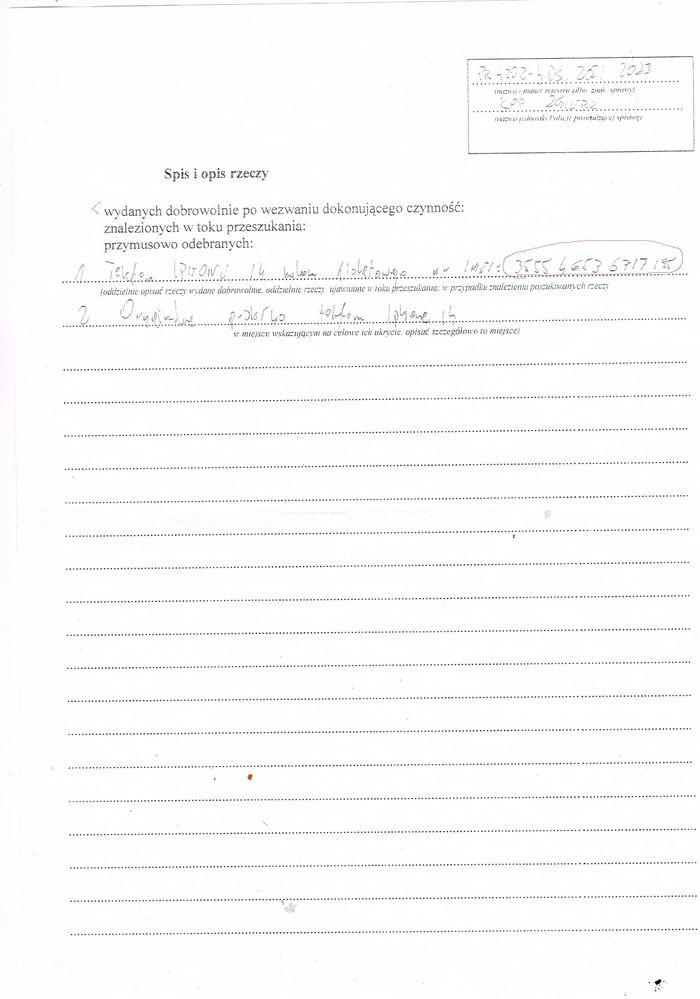 PR 4202-4 Ds. 251. 2023
(nazwa i numer rejestru albo znak sprawy)
KPP
(nazwa jednostki Policji prowadzącej sprawę)
Spis i opis rzeczy
wydanych dobrowolnie po wezwaniu dokonującego czynność:
znalezionych w toku przeszukania:
przymusowo odebranych:
1 Telefon IPHONE 14 koloru fioletowego nr IMEI:
(oddzielnie opisać rzeczy wydane dobrowolnie, oddzielnie rzeczy ujawnione w toku przeszukania; w przypadku znalezienia poszukiwanych rzeczy
2 Oryginalne pudełko telefon Iphone 14
w miejscu wskazującym na celowe ich ukrycie, opisać szczegółowo to miejsce)